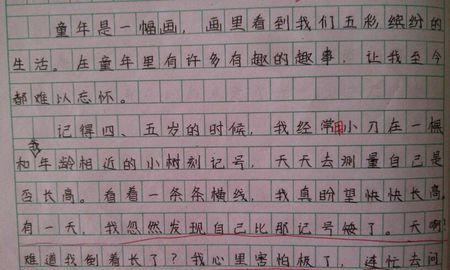 童年是一幅画，画里看到我们五彩缤纷的
生活。在童年里有许多有趣的趣事，让我至今
都难以忘怀。
记得四、五岁的时候，我经常用小刀在一棵
和我年龄相近的小树刻记号，天天去测量自己是
否长高。看着一条条横线，我真盼望快快长高。
有一天，我忽然发现自己比那记号矮了。天啊！
难道我倒着长了？我心里害怕极了，连忙去问